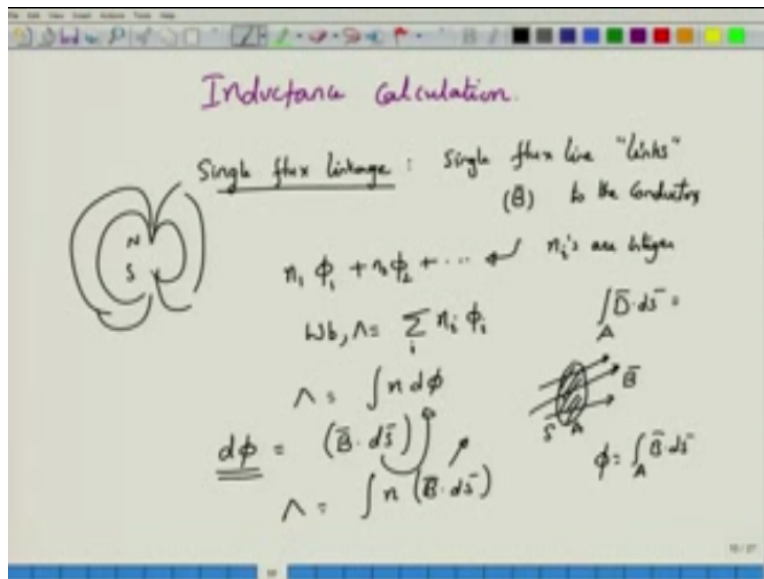 Inductance Calculation.
Single flux linkage : Single flux line "links"
(B̄) to the Conductor
N
S
n₁ ϕ₁ + n₂ϕ₂ + ⋯ ← nᵢ's are integer
Wb, Λ = ∑ᵢ nᵢ ϕᵢ
∫_A D̄·ds̄ =
Λ = ∫ n dϕ
B̄
S̄ A
dϕ = (B̄·ds̄)
ϕ = ∫_A B̄·ds̄
Λ = ∫ n (B̄·ds̄)